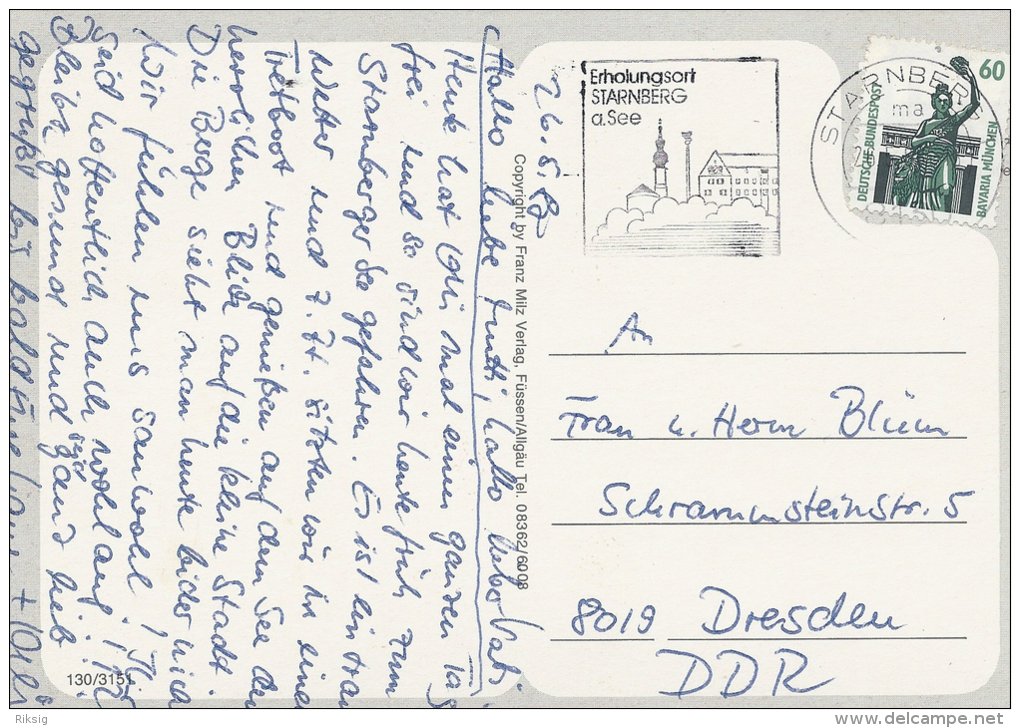 26.5.89
Hallo liebe Mutti, hallo lieber Vati
Heute hat Olli mal einen ganzen Tag
frei und so sind wir heute früh zum
Starnberger See gefahren. Es ist ein
Wetter und z. Zt. sitzen wir in einem
Tretboot und genießen auf dem See den
herrlichen Blick auf die kleine Stadt.
Die Berge sieht man heute leider nicht
Wir fühlen uns sauwohl! Ihr
seid hoffentlich auch wohlauf!
Bleibt gesund und seid ganz lieb
gegrüßt bis bald + Olli
130/3151
Copyright by Franz Milz Verlag, Füssen/Allgäu Tel. 08362/6008
Erholungsort
STARNBERG
a.See
STARNBERG
ma
60
DEUTSCHE BUNDESPOST
BAVARIA MÜNCHEN
An
Frau u. Herrn Blüm
Schrammsteinstr. 5
8019 Dresden
DDR
Riksig
delcampe.net